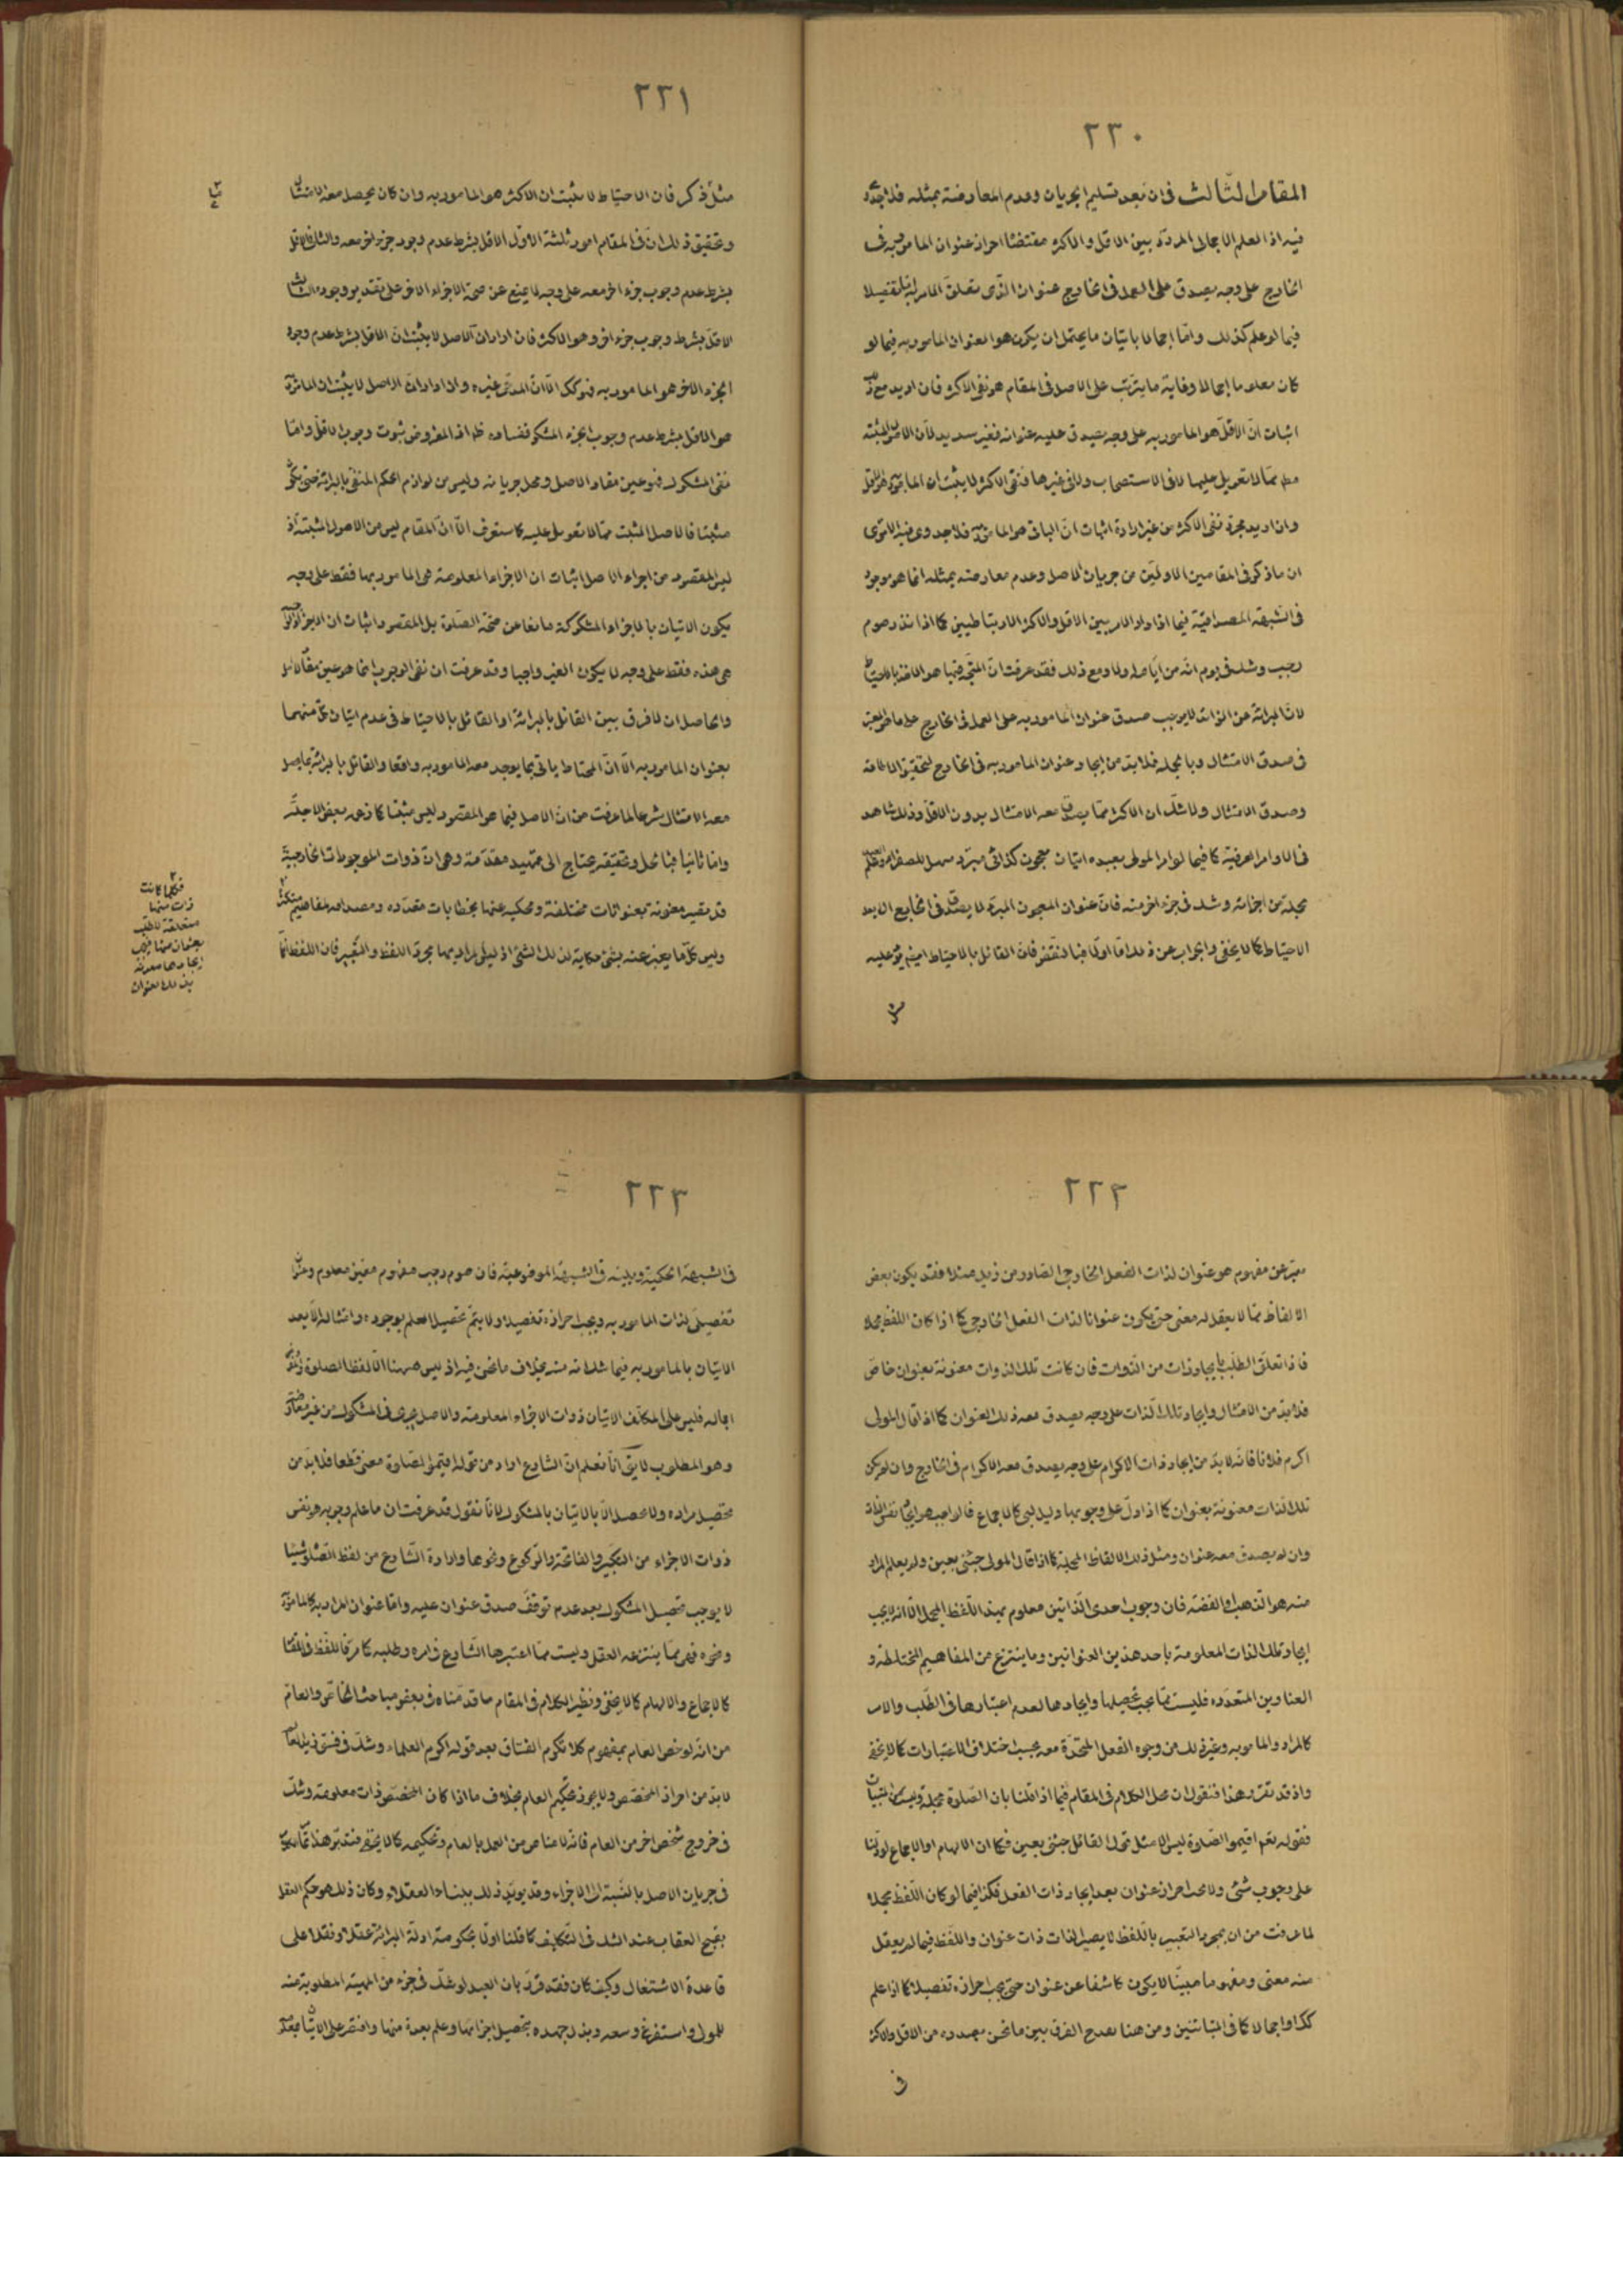 ٢٢٠
المقام الثالث فى ان بعد تسليم الجريان وعدم المعارضة بمثله فلا جدوى
فيه اذ العلم الاجمالى المردد بين الاقل والاكثر مقتضاه احراز عنوان المامور به فى
الخارج على وجه يصدق على العمل فى الخارج عنوان الذى متعلق الامر به تفصيلا
فيما لو علم كذلك واما اجمالا باتيان ما يحتمل ان يكون هو العنوان المامور به فيما لو
كان معلوما اجمالا وغاية ما يترتب على الاصل فى المقام هو نفى الاكثر فان اريد مع ذلك
اثبات ان الاقل هو المامور به على وجه يصدق عليه عنوانه فغير سديد لان الاصول المثبتة
مما لا تعويل عليها لا فى الاستصحاب ولا فى غيرها فنفى الاكثر لا يثبت ان المامور به هو الاقل
وان اريد مجرد نفى الاكثر من غير ارادة اثبات ان الباقى هو المامور به فلا جدوى فيه الا ترى
ان ما ذكر فى المقامين الاولين من جريان الاصل وعدم معارضته بمثله انما هو موجود
فى الشبهة المصداقية فيما اذا دار الامر بين الاقل والاكثر الارتباطيين كما اذا نذر صوم
رجب وشك فى يوم انه من ايامه اولا ومع ذلك فقد عرفت ان المتجه فيها هو الاخذ بالاحتياط
لان البرائة عن الزائد لا يوجب صدق عنوان المامور به على العمل فى الخارج على ما هو المعتبر
فى صدق الامتثال وبالجملة فلا بد من ايجاد عنوان المامور به فى الخارج لتحقيق الاطاعة
وصدق الامتثال ولا شك ان الاكثر مما يصدق معه الامتثال بدون الاقل وذلك شاهد
فى الاوامر العرفية كما فيما لو امر المولى بعبده اتيان معجون كذائى مبرد مسهل للصفراء وعلم العبد
بجملة من اجزائه وشك فى جزء اخر منه فان عنوان المعجون المبرد لا يصدق فى الخارج الا بعد
الاحتياط كما لا يخفى والجواب عن ذلك اما اولا فبالنقض فان القائل بالاحتياط ايضا يرد عليه
مثل
٢٢١
مثل ما ذكر فان الاحتياط لا يثبت ان الاكثر هو المامور به وان كان يحصل معه الامتثال
وتحقيق ذلك ان فى المقام امور ثلثة الاول الاقل بشرط عدم وجود جزء اخر معه والثانى الاقل
بشرط عدم وجوب جزء اخر معه على وجه لا يمنع عن صحة الاجزاء الاخر على تقدير وجوده والثالث
الاقل بشرط وجوب جزء اخر وهو الاكثر فان اراد ان الاصل لا يثبت ان الاقل بشرط عدم وجود
الجزء الاخر هو المامور به فهو كك الا ان المدعى غيره وان اراد ان الاصل لا يثبت ان المامور به
هو الاقل بشرط عدم وجوب الجزء المشكوك ففساده ظ اذ المفروض ثبوت وجوب الاقل واما
نفى المشكوك فهو عين مفاد الاصل ومحل جريانه وليس من لوازم الحكم المنفى بالبرائة حتى يكون
مثبتا فالاصل المثبت مما لا تعويل عليه كما ستعرف الا ان المقام ليس من الاصول المثبتة اذ
ليس المقصود من اجراء الاصل اثبات ان الاجزاء المعلومة هى المامور بها فقط على وجه
يكون الاتيان بالاجزاء المشكوكة مانعا عن صحة الصلوة بل المقصود اثبات ان الاجزاء الواجبة
هى هذه فقط على وجه لا يكون الغير واجبا وقد عرفت ان نفى الوجوب انما هو عين مفاد الاصل
والحاصل ان لا فرق بين القائل بالبرائة او القائل بالاحتياط فى عدم اتيان كل منهما
بعنوان المامور به الا ان المحتاط ياتى بما يوجد معه المامور به واقعا والقائل بالبرائة بما يصل
معه الامتثال شرعا لما عرفت من ان الاصل فيما هو المقصود ليس مثبتا كما زعمه بعض الاجلة
واما ثانيا فبالحل وتحقيقه يحتاج الى تمهيد مقدمة وهى ان ذوات الموجودات الخارجية
قد تصير معنونة بعنوانات مختلفة ومحكيه عنها بخطابات متعدده ومصداقه لمفاهيم متكثرة
وليس كل ما يعبر عنه بشئ حكاية لذلك الشئ اذ ليس المراد بها مجرد اللفظ والتعبير فان اللفظ انما
فكلما كانت
ذات منها
متعلقة للطلب
بعنوان منها فيجب
ايجادها معنونة
بذلك العنوان
٢٢٢
معبر عن مفهوم هو عنوان لذات الفعل الخارجى الصادر من زيد مثلا فقد يكون بعض
الالفاظ مما لا يعقل له معنى حتى يكون عنوانا لذات الفعل الخارجى كما اذا كان اللفظ مجملا
فاذا تعلق الطلب بايجاد ذات من الذوات فان كانت تلك الذوات معنونة بعنوان خاص
فلا بد من الامتثال وايجاد تلك الذات على وجه يصدق معه ذلك العنوان كما اذا قال المولى
اكرم فلانا فانه لا بد من ايجاد ذات الاكرام على وجه يصدق معه الاكرام فى الخارج وان لم يكن
تلك الذات معنونة بعنوان كما اذا دل على وجوبها دليل لبى كالاجماع فالواجب هو ايجاد نفس الذات
وان لم يصدق معه عنوان ومثل ذلك الالفاظ المجملة كما اذا قال المولى جئنى بعين ولم يعلم المراد
منه هو الذهب او الفضة فان وجوب احدى الذاتين معلوم بهذا اللفظ المجمل الا انه لا يجب
ايجاد تلك الذات المعلومة باحد هذين العنوانين وما ينتزع من المفاهيم المختلطة و
العناوين المتعدده فليست مما يجب تحصيلها وايجادها لعدم اعتبارها فى الطلب والامر
كالمراد والمامور به وغير ذلك من وجوه الفعل المتحدة معه بحسب اختلاف الاعتبارات كما لا يخفى
واذ قد تقرر هذا فنقول ان محل الكلام فى المقام فيما اذا قلنا بان الصلوة مجملة وليست من المبينات
فقوله تعم اقيموا الصلوة ليس الا مثل قول القائل جئنى بعين فكما ان الالهام او الاجماع لو دلنا
على وجوب شئ ولا يجب احراز عنوان بعد ايجاد ذات الفعل فكذا فيما لو كان اللفظ مجملا
لما عرفت من ان بمجرد التعبير باللفظ لا يصير الذات ذات عنوان واللفظ فيما لم يعقل
منه معنى ومفهوما مبينا لا يكون كاشفا عن عنوان حتى يجب احرازه تفصيلا كما اذا علم
كك او اجمالا كما فى المتباينين ومن هنا يقدح الفرق بين ما نحن بصدده من الاقل والاكثر
فى
٢٢٣
فى الشبهة الحكمية وبينه فى الشبهة الموضوعية فان صوم رجب مفهوم معين معلوم وعنوان
تفصيلى لذات المامور به ويجب احرازه تفصيلا ولا يتم تحصيل العلم بوجوده وامتثاله الا بعد
الاتيان بالمامور به فيما شك انه منه بخلاف ما نحن فيه اذ ليس هيهنا الا لفظ الصلوة والمفروض
اجماله فليس على المكلف الا اتيان ذوات الاجزاء المعلومة والاصل يجرى فى المشكوك من غير معارض
وهو المطلوب لا يق انا نعلم ان الشارع اراد من قوله اقيموا الصلوة معنى قطعا فلا بد من
تحصيل مراده ولا يحصل الا بالاتيان بالمشكوك لانا نقول قد عرفت ان ما علم وجوبه هو نفس
ذوات الاجزاء من التكبير والفاتحة والركوع ونحوها وارادة الشارع من لفظ الصلوة شيئا
لا يوجب تحصيل المشكوك بعد عدم توقف صدق عنوان عليه واما عنوان المراد به كالمامور به
ونحوه فهى مما ينتزعه العقل وليست مما اعتبرها الشارع فى امره وطلبه كما مر فاللفظ فى المقام
كالاجماع والالهام كما لا يخفى ونظير الكلام فى المقام ما قدمناه فى بعض مباحث الخاص والعام
من انه لو خص العام بمفهوم كلا تكرم الفساق بعد قوله اكرم العلماء وشك فى فسق زيد العالم
لا بد من احراز المخصص ولا يجوز تحكيم العام بخلاف ما اذا كان المخصص ذات معلومة وشك
فى خروج شخص اخر من العام فانه لا مناص من العمل بالعام وتحكيمه كما لا يخفى فتدبر هذا تمام الكلام
فى جريان الاصل بالنسبة الى الاجزاء وقد يؤيد ذلك ببناء العقلاء وكان ذلك هو حكم العقل
بقبح العقاب عند الشك فى التكليف كما قلنا اولا بحكومة ادلة البرائة عقلا ونقلا على
قاعدة الاشتغال وكيف كان فقد قرر بان العبد لو شك فى جزء من المهية المطلوبة منه
للمولى واستفرغ وسعه وبذل جهده بتحصيل اجزائها وعلم بعدة منها واقتصر على الاتيان بها